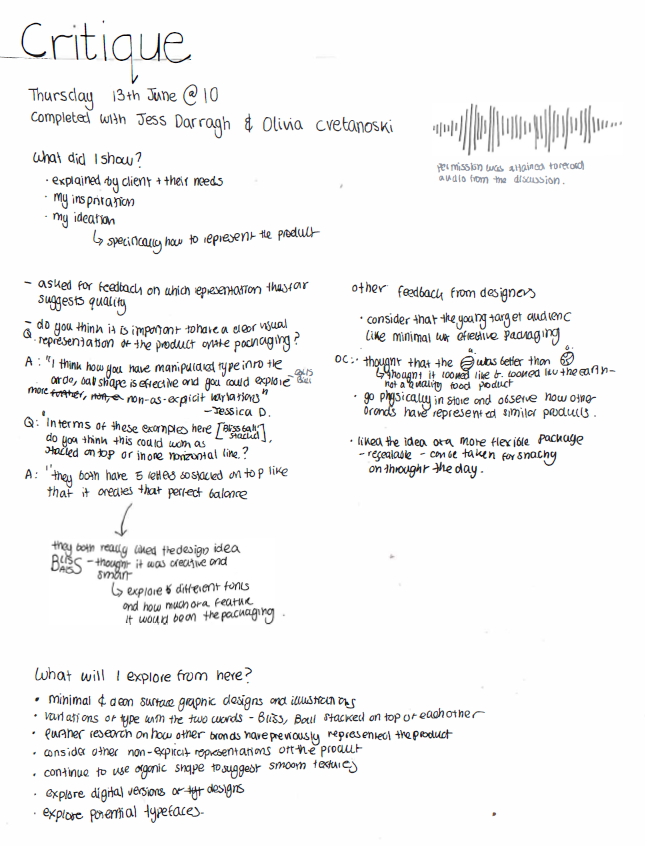 Critique
Thursday 13th June @ 10
Completed with Jess Darragh & Olivia Cvetanoski
Permission was attained to record
audio from the discussion.
What did I show?
· explained by client + their needs
· My inspiration
· my ideation
↳ specifically how to represent the product
- asked for feedback on which representation thus far
suggests quality
- do you think it is important to have a clear visual
Q. representation of the product on the packaging?
A: "I think how you have manipulated type into the
ball shape is effective and you could explore
more further, non-as-explicit variations"
- Jessica D.
Q: "In terms of these examples here [Bliss Ball stacked],
do you think this could work as
stacked on top or in one horizontal line?
A: "they both have 5 letters so stacked on top like
that it creates that perfect balance
they both really liked the design idea
BLISS BALLS - thought it was creative and
smart
↳ explore different fonts
and how much of a feature
it would be on the packaging.
other feedback from designers
· consider that the young target audienc
like minimal but effective packaging
OC: · thought that the a. was better than b.
↳ thought it looked like b. looked like the earth -
not a quality food product
· go physically in store and observe how other
brands have represented similar products.
· liked the idea of a more flexible package
- resealable - can be taken for snacky
on throught the day.
What will I explore from here?
• minimal & clean surface graphic designs and illustrations
• variations of type with the two words - Bliss, Ball stacked on top of each other
• further research on how other brands have previously represented the product
• consider other non-explicit representations of the product
• continue to use organic shape to suggest smooth textures
• explore digital versions of designs
• explore potential typefaces.